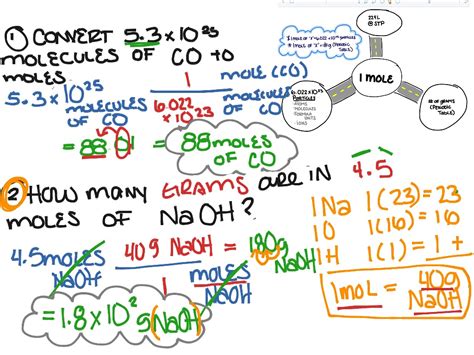 ① CONVERT 5.3 x 10²⁵
MOLECULES OF CO to
MOLES.
5.3 x 10²⁵ MOLECULES OF CO | 1 MOLE (CO)
6.022 x 10²³ MOLECULES OF CO
= 88.01 = 88 MOLES OF CO
22.4 L
@ STP
1 MOLE
6.022 x 10²³
PARTICLES
ATOMS
MOLECULES
FORMULA
UNITS
IONS
# OF GRAMS
(PERIODIC
TABLE)
② HOW MANY GRAMS ARE IN 4.5
MOLES OF NaOH?
4.5 moles NaOH | 40g NaOH = 180g
1 moles NaOH
= 1.8 x 10² g (NaOH)
1 Na 1(23) = 23
1 O 1(16) = 16
1 H 1(1) = 1 +
1 MOL = 40g NaOH